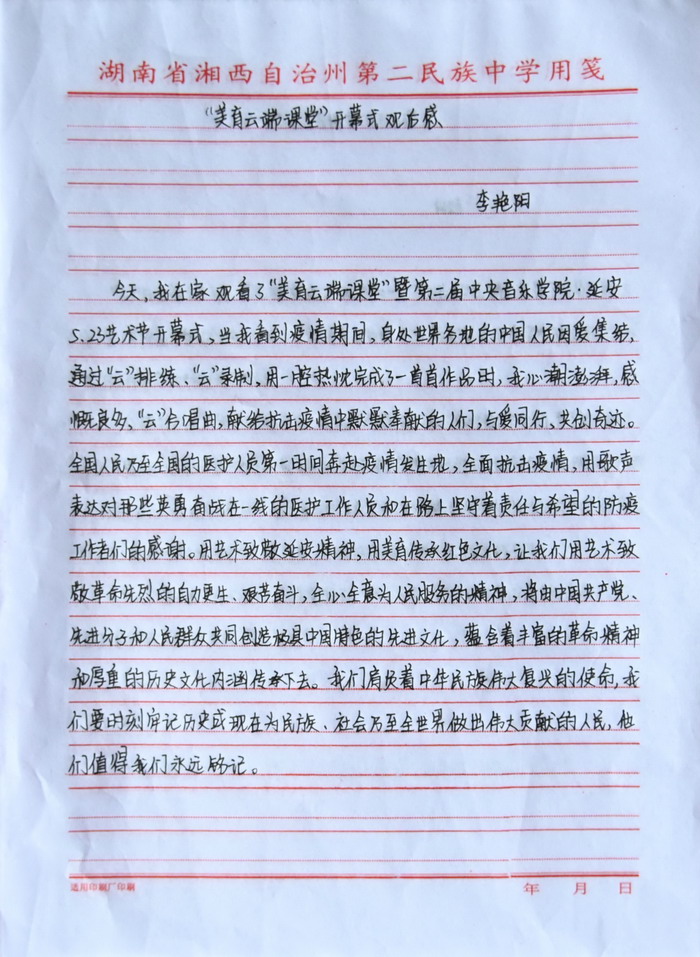 湖南省湘西自治州第二民族中学用笺
“美育云端课堂”开幕式观后感
李艳阳
今天，我在家观看了“美育云端课堂”暨第二届中央音乐学院·延安
5.23艺术节开幕式，当我看到疫情期间，身处世界各地的中国人民因爱集结，
通过“云”排练、“云”录制，用一腔热忱完成了一首首作品时，我心潮澎湃，感
慨良多、“云”合唱曲，献给抗击疫情中默默奉献的人们，与爱同行、共创奇迹。
全国人民乃至全国的医护人员第一时间奔赴疫情发生地，全面抗击疫情，用歌声
表达对那些英勇奋战在一线的医护工作人员和在路上坚守着责任与希望的防疫
工作者们的感谢。用艺术致敬延安精神，用美育传承红色文化，让我们用艺术致
敬革命先烈的自力更生、艰苦奋斗，全心全意为人民服务的精神，将由中国共产党、
先进分子和人民群众共同创造极具中国特色的先进文化，蕴含着丰富的革命精神
和厚重的历史文化内涵传承下去。我们肩负着中华民族伟大复兴的使命，我
们要时刻牢记历史或现在为民族、社会乃至全世界做出伟大贡献的人民，他
们值得我们永远铭记。
适用印刷厂印刷
年 月 日